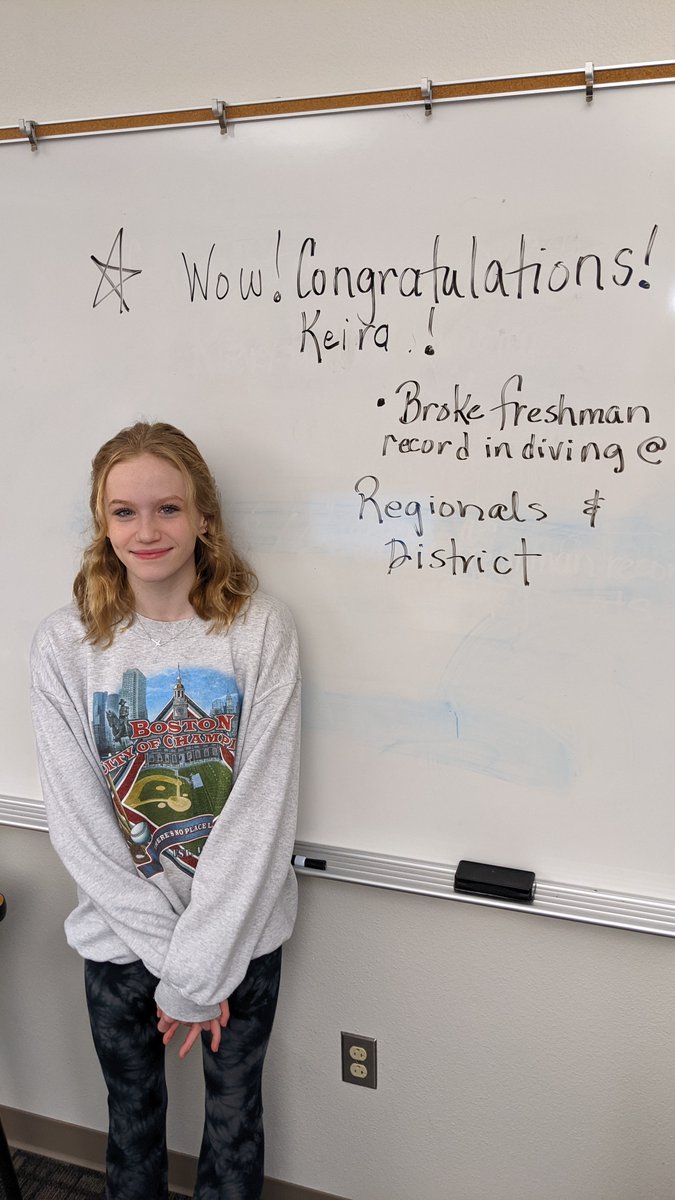 Wow! Congratulations!
Keira!
• Broke freshman
record in diving @
Regionals &
District
BOSTON
CITY OF CHAMP
THERE'S NO PLACE L